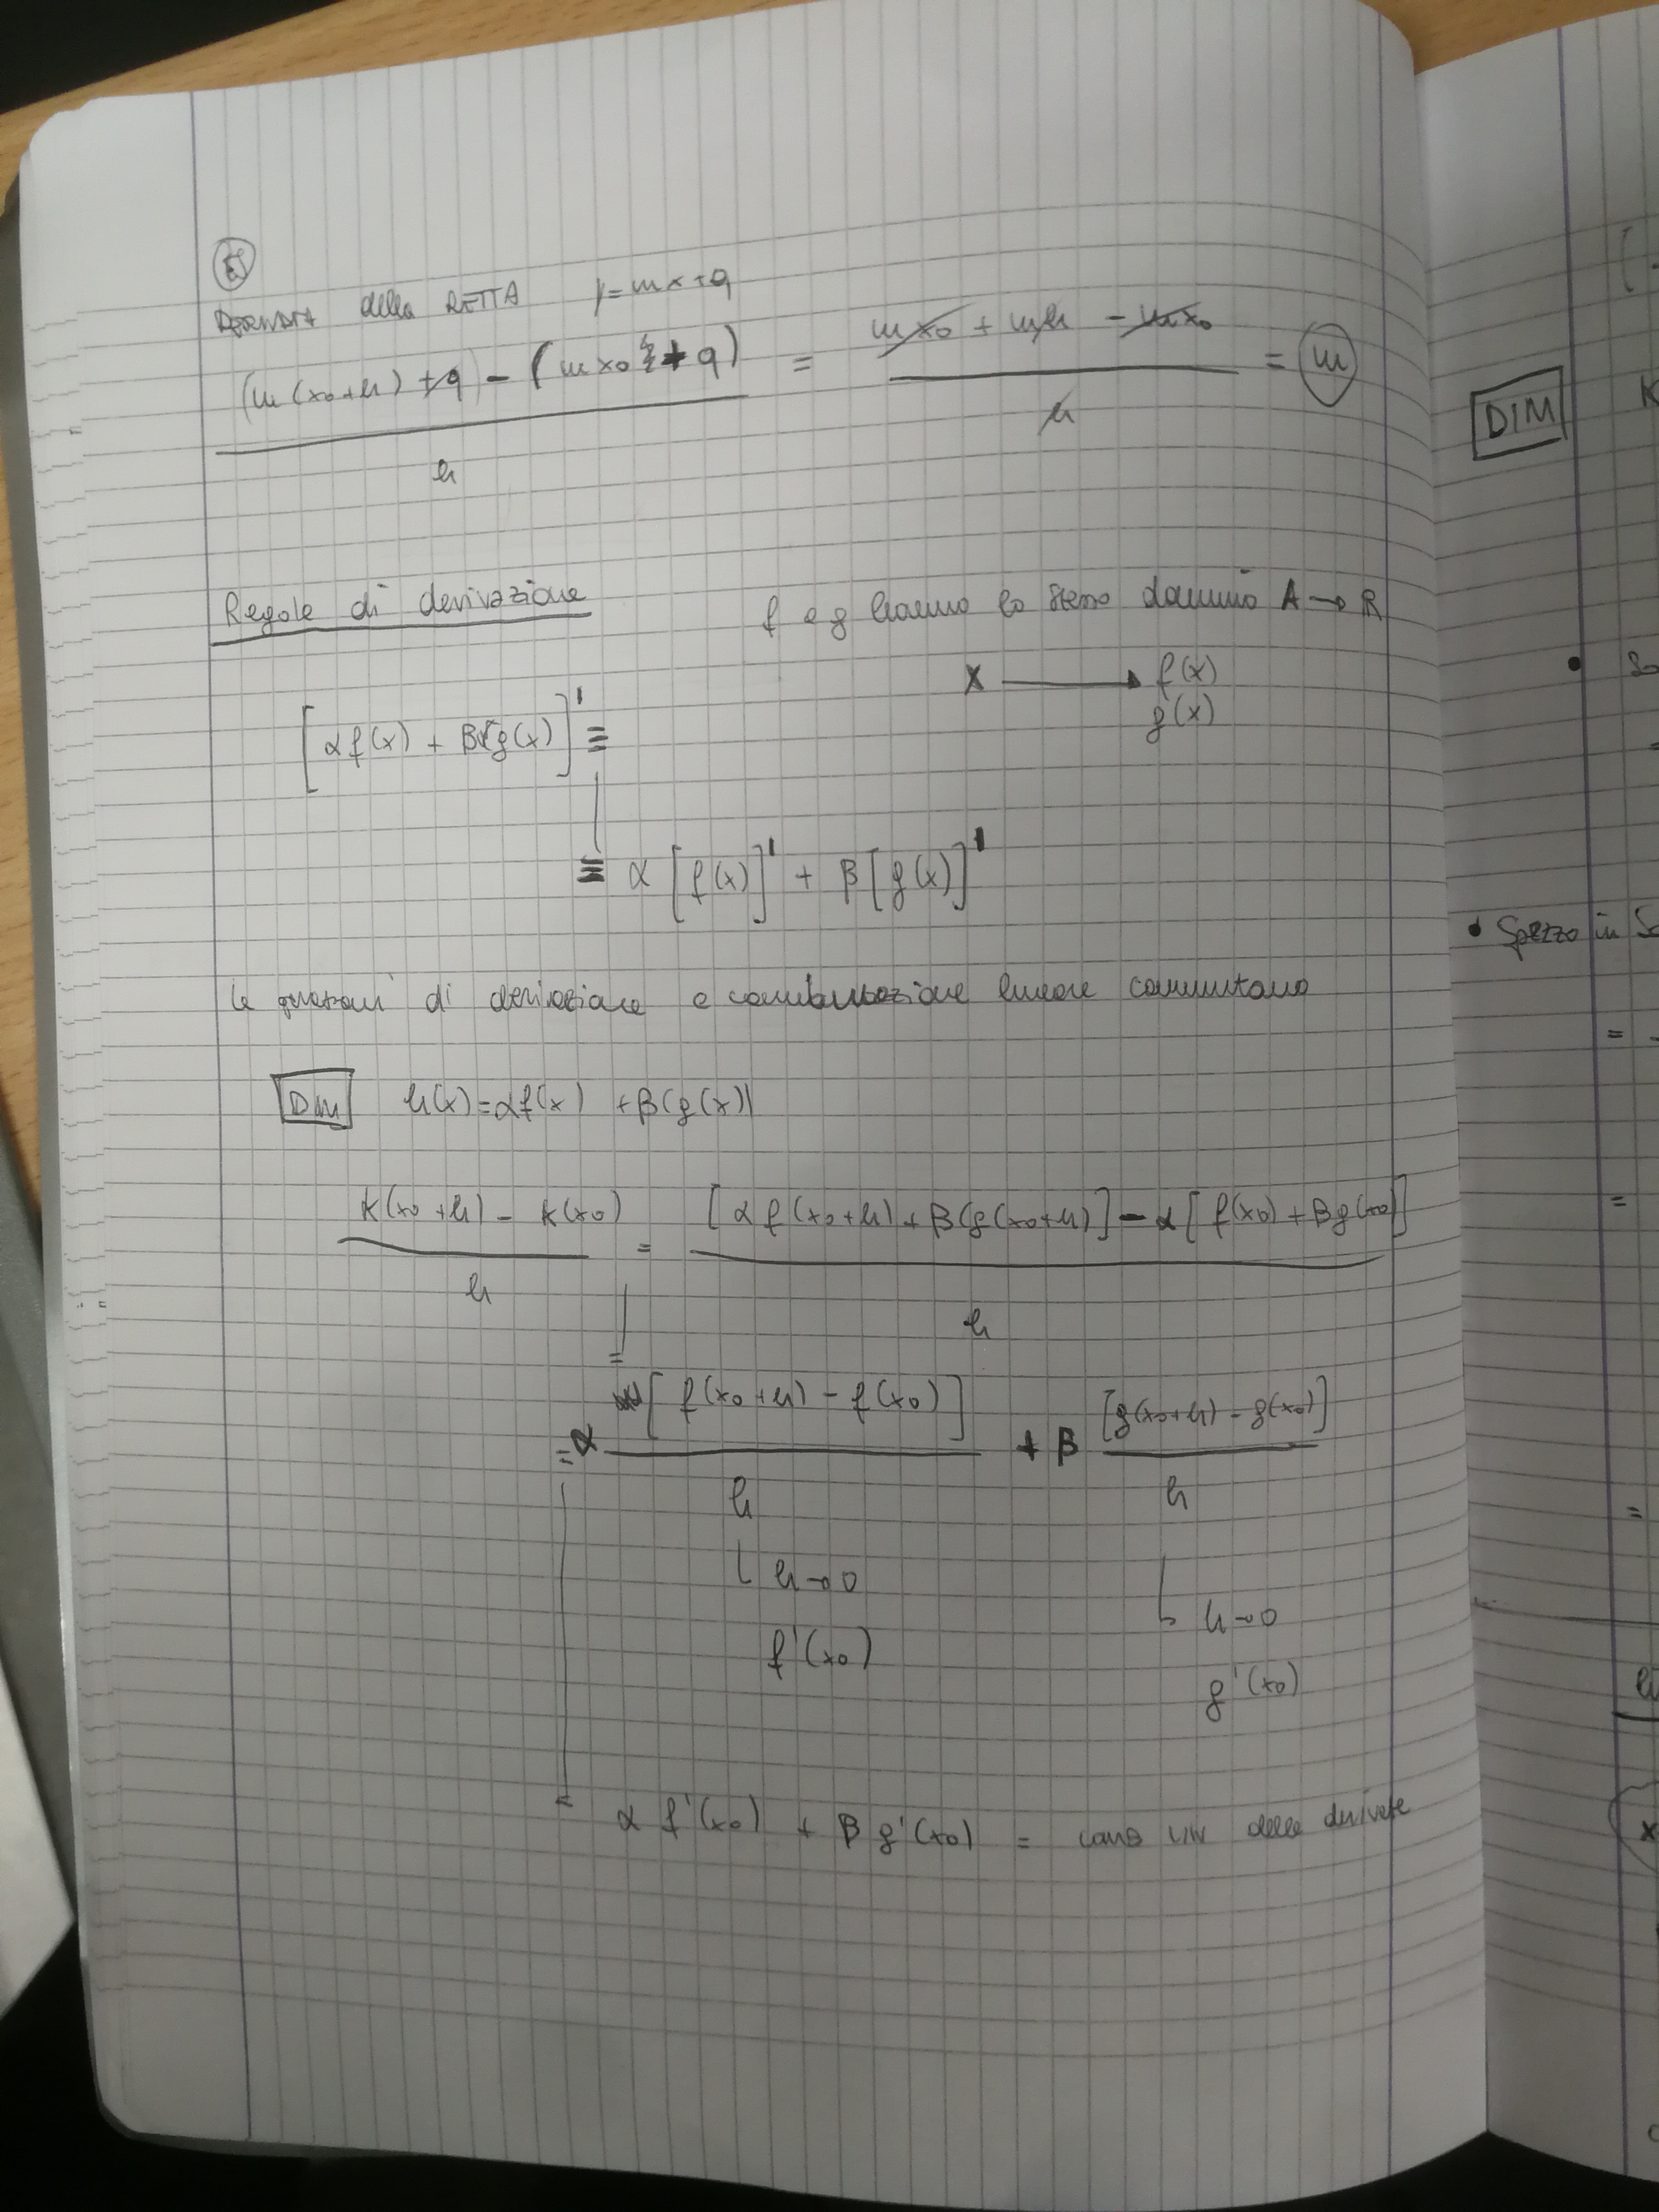 ES
DERIVATA della RETTA y = mx + q
(m(x₀+h) + q) - (m x₀ + q) / h = m x₀ + mh - m x₀ / h = m
Regole di derivazione f e g hanno lo stesso dominio A → R
x → f(x)
g(x)
[αf(x) + β(g(x)]' =
= α [f(x)]' + β [g(x)]'
di derivazione e combinazione lineare commutano
DIM h(x) = αf(x) + β(g(x))
K(x₀+h) - K(x₀) / h = [α f(x₀+h) + β(g(x₀+h)] - α[f(x₀) + βg(x₀)] / h
=
= α [f(x₀+h) - f(x₀)] / h + β [g(x₀+h) - g(x₀)] / h
h→0 h→0
f'(x₀) g'(x₀)
= α f'(x₀) + β g'(x₀) = comb lin delle derivate
DIM K
• Spezzo in
=
=
=
x